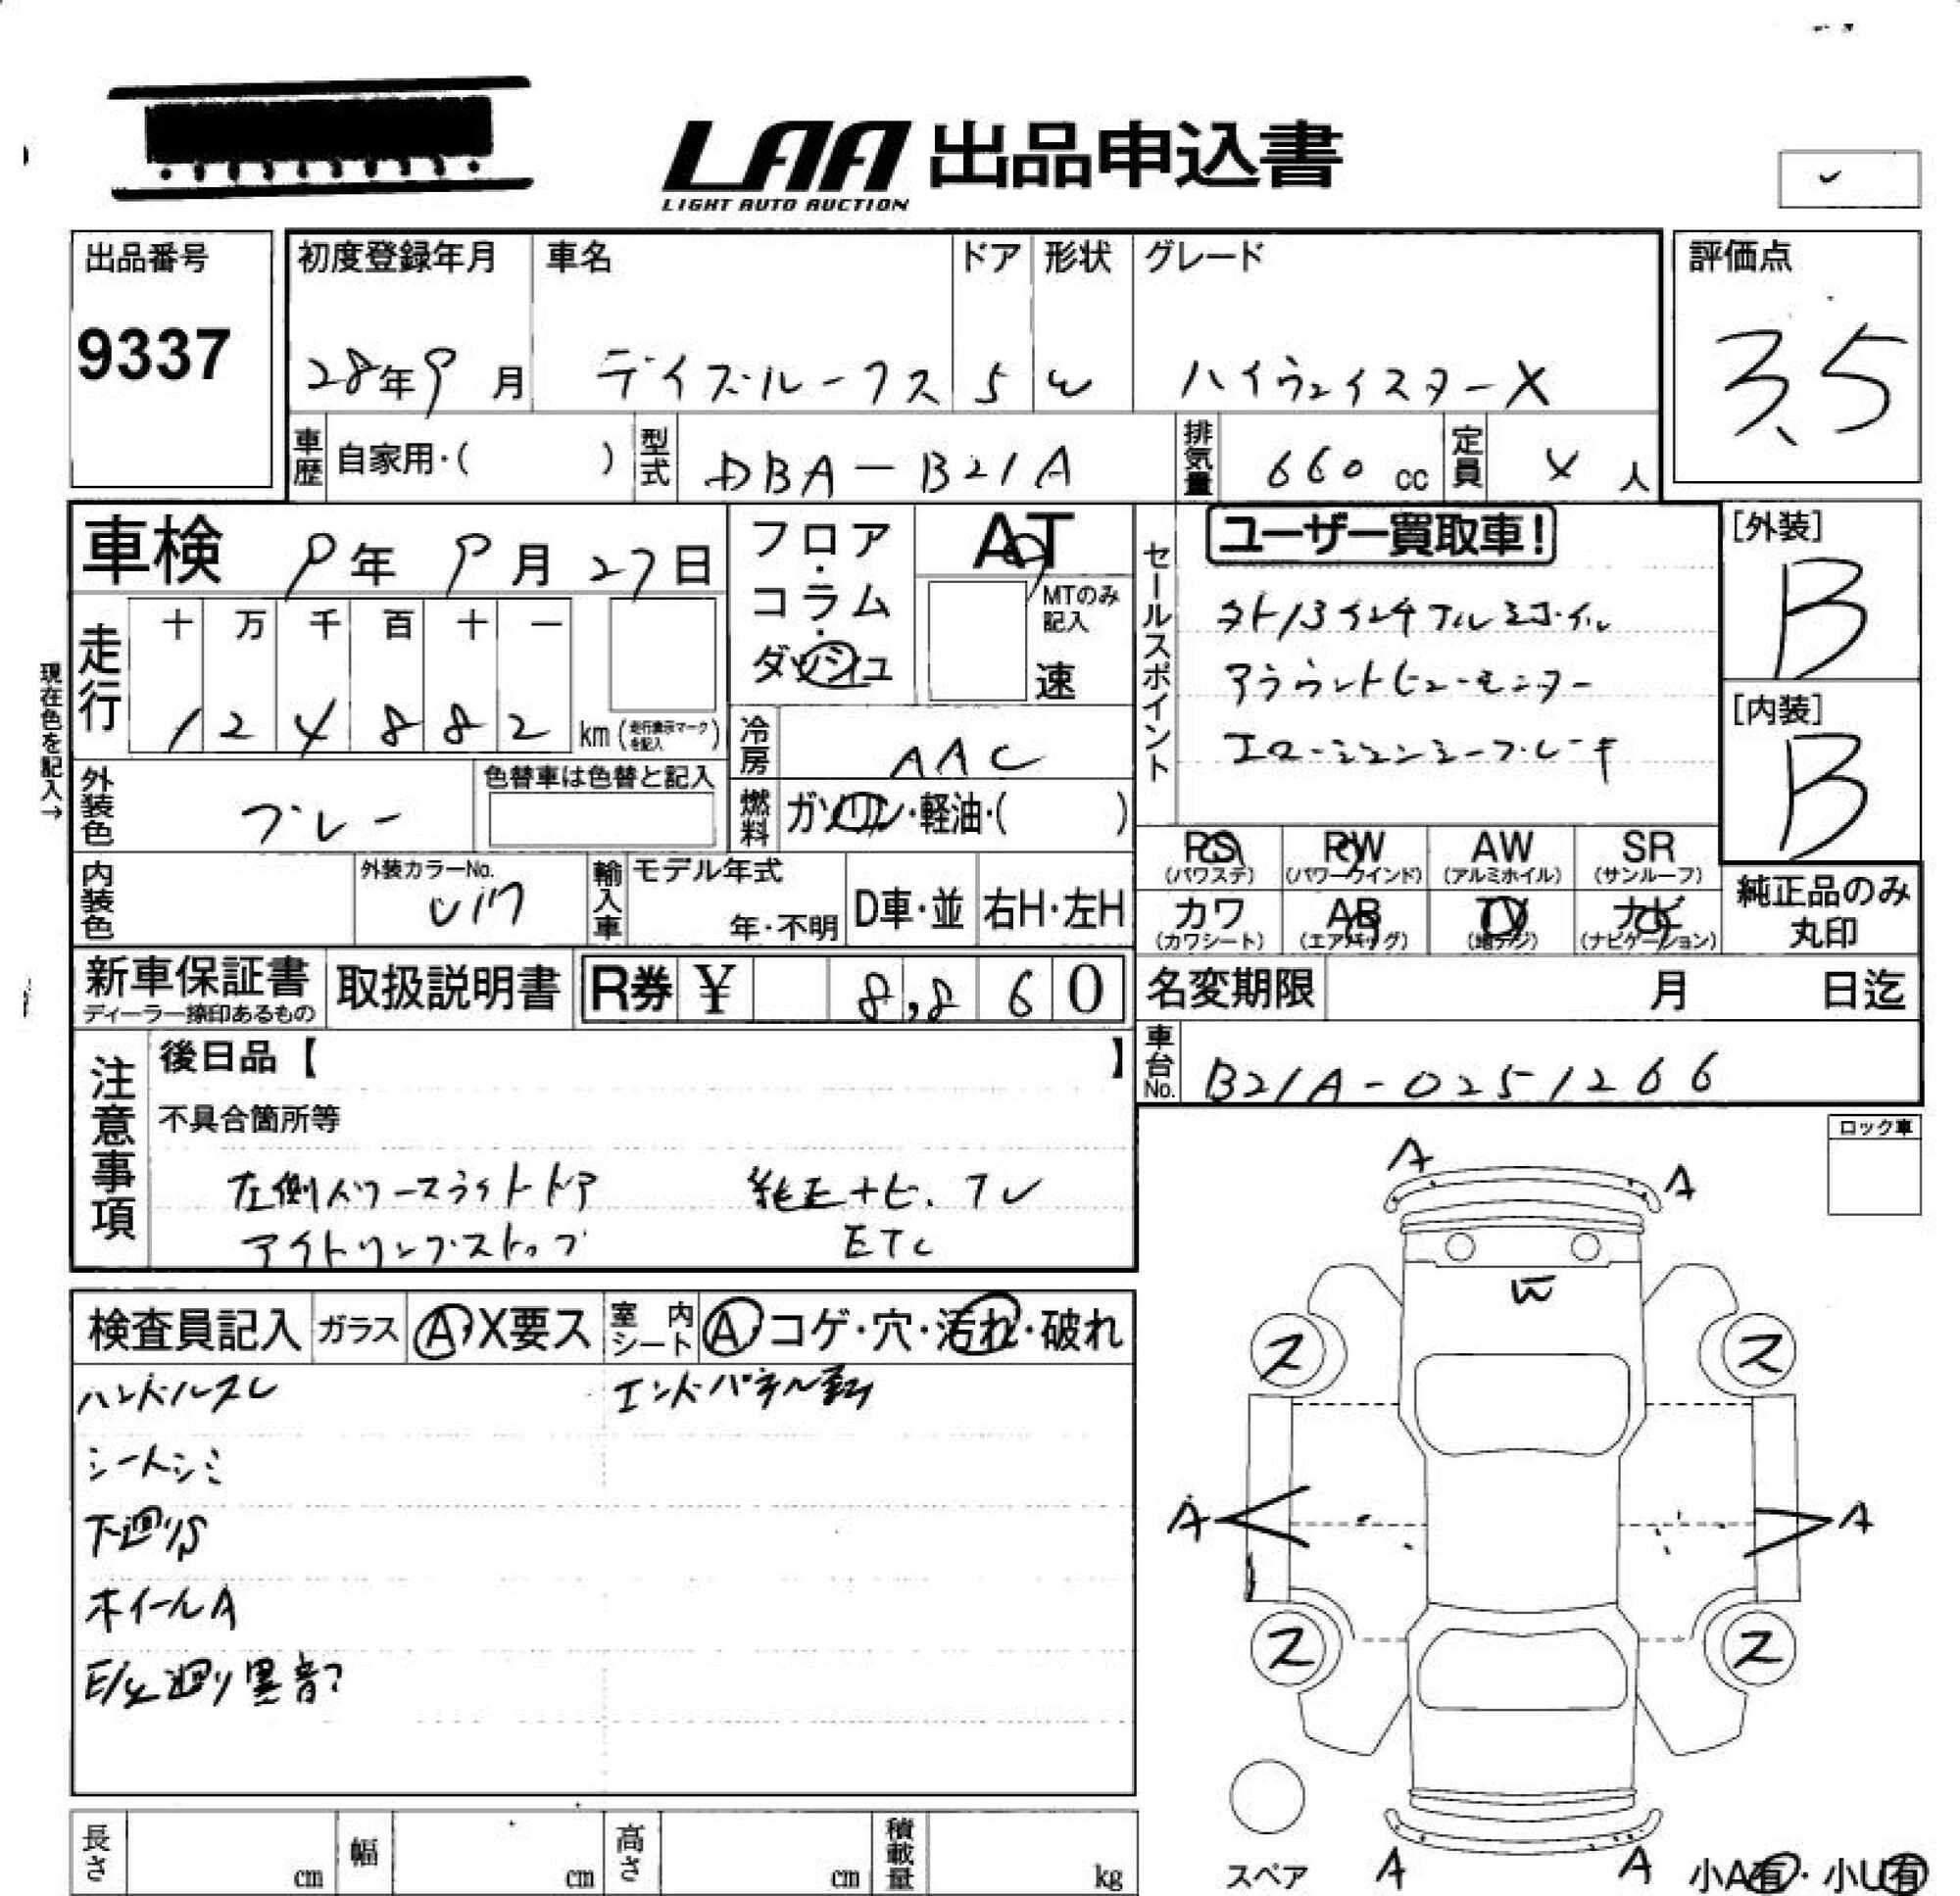 LAA 出品申込書
LIGHT AUTO AUCTION
出品番号
9337
初度登録年月
28年9月
車名
デイズルークス
ドア
5
形状
W
グレード
ハイウェイスターX
評価点
3.5
車歴 自家用・( )
型式 DBA-B21A
排気量 660 cc
定員 4 人
車検 9年9月27日
走行 十 万 千 百 十 一
1 2 4 8 8 2 km (走行表示マークを記入)
現在色を記入→
フロア・コラム・ダッシュ
AT
MTのみ記入
速
冷房 AAC
燃料 ガソリン・軽油・( )
外装色 グレー
色替車は色替と記入
内装色
外装カラーNo.
輸入車 モデル年式
年・不明
D車・並
右H・左H
セールスポイント
ユーザー買取車!
アラウンドビューモニター
エマージェンシーブレーキ
[外装]
B
[内装]
B
RS (パワステ)
PW (パワーウインド)
AW (アルミホイル)
SR (サンルーフ)
カワ (カワシート)
AB (エアバッグ)
TV (地デジ)
ナビ (ナビゲーション)
純正品のみ丸印
新車保証書
ディーラー捺印あるもの
取扱説明書
R券 ¥ 8,860
名変期限 月 日迄
車台No. B21A-0251266
注意事項
後日品【 】
不具合箇所等
左側パワースライドドア 純正ナビ、TV
アイドリングストップ ETC
ロック車
検査員記入 ガラス A・X要ス 室内シート A コゲ・穴・汚れ・破れ
ハンドルスレ
エンドパネル
シートシミ
下廻りS
ホイールA
廻り異音
A
A
ス
ス
A
A
ス
ス
A
A
スペア
小A有・小U有
長さ cm
幅 cm
高さ cm
積載量 kg